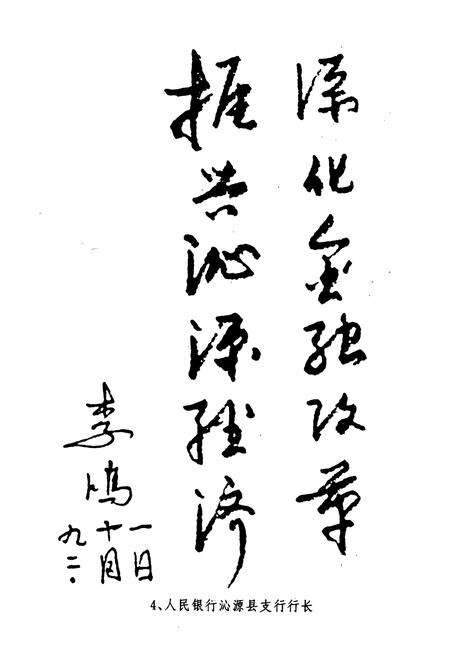 深化金融改革
振兴沁源经济
李鸿
九二.十月一日
4、人民银行沁源县支行行长